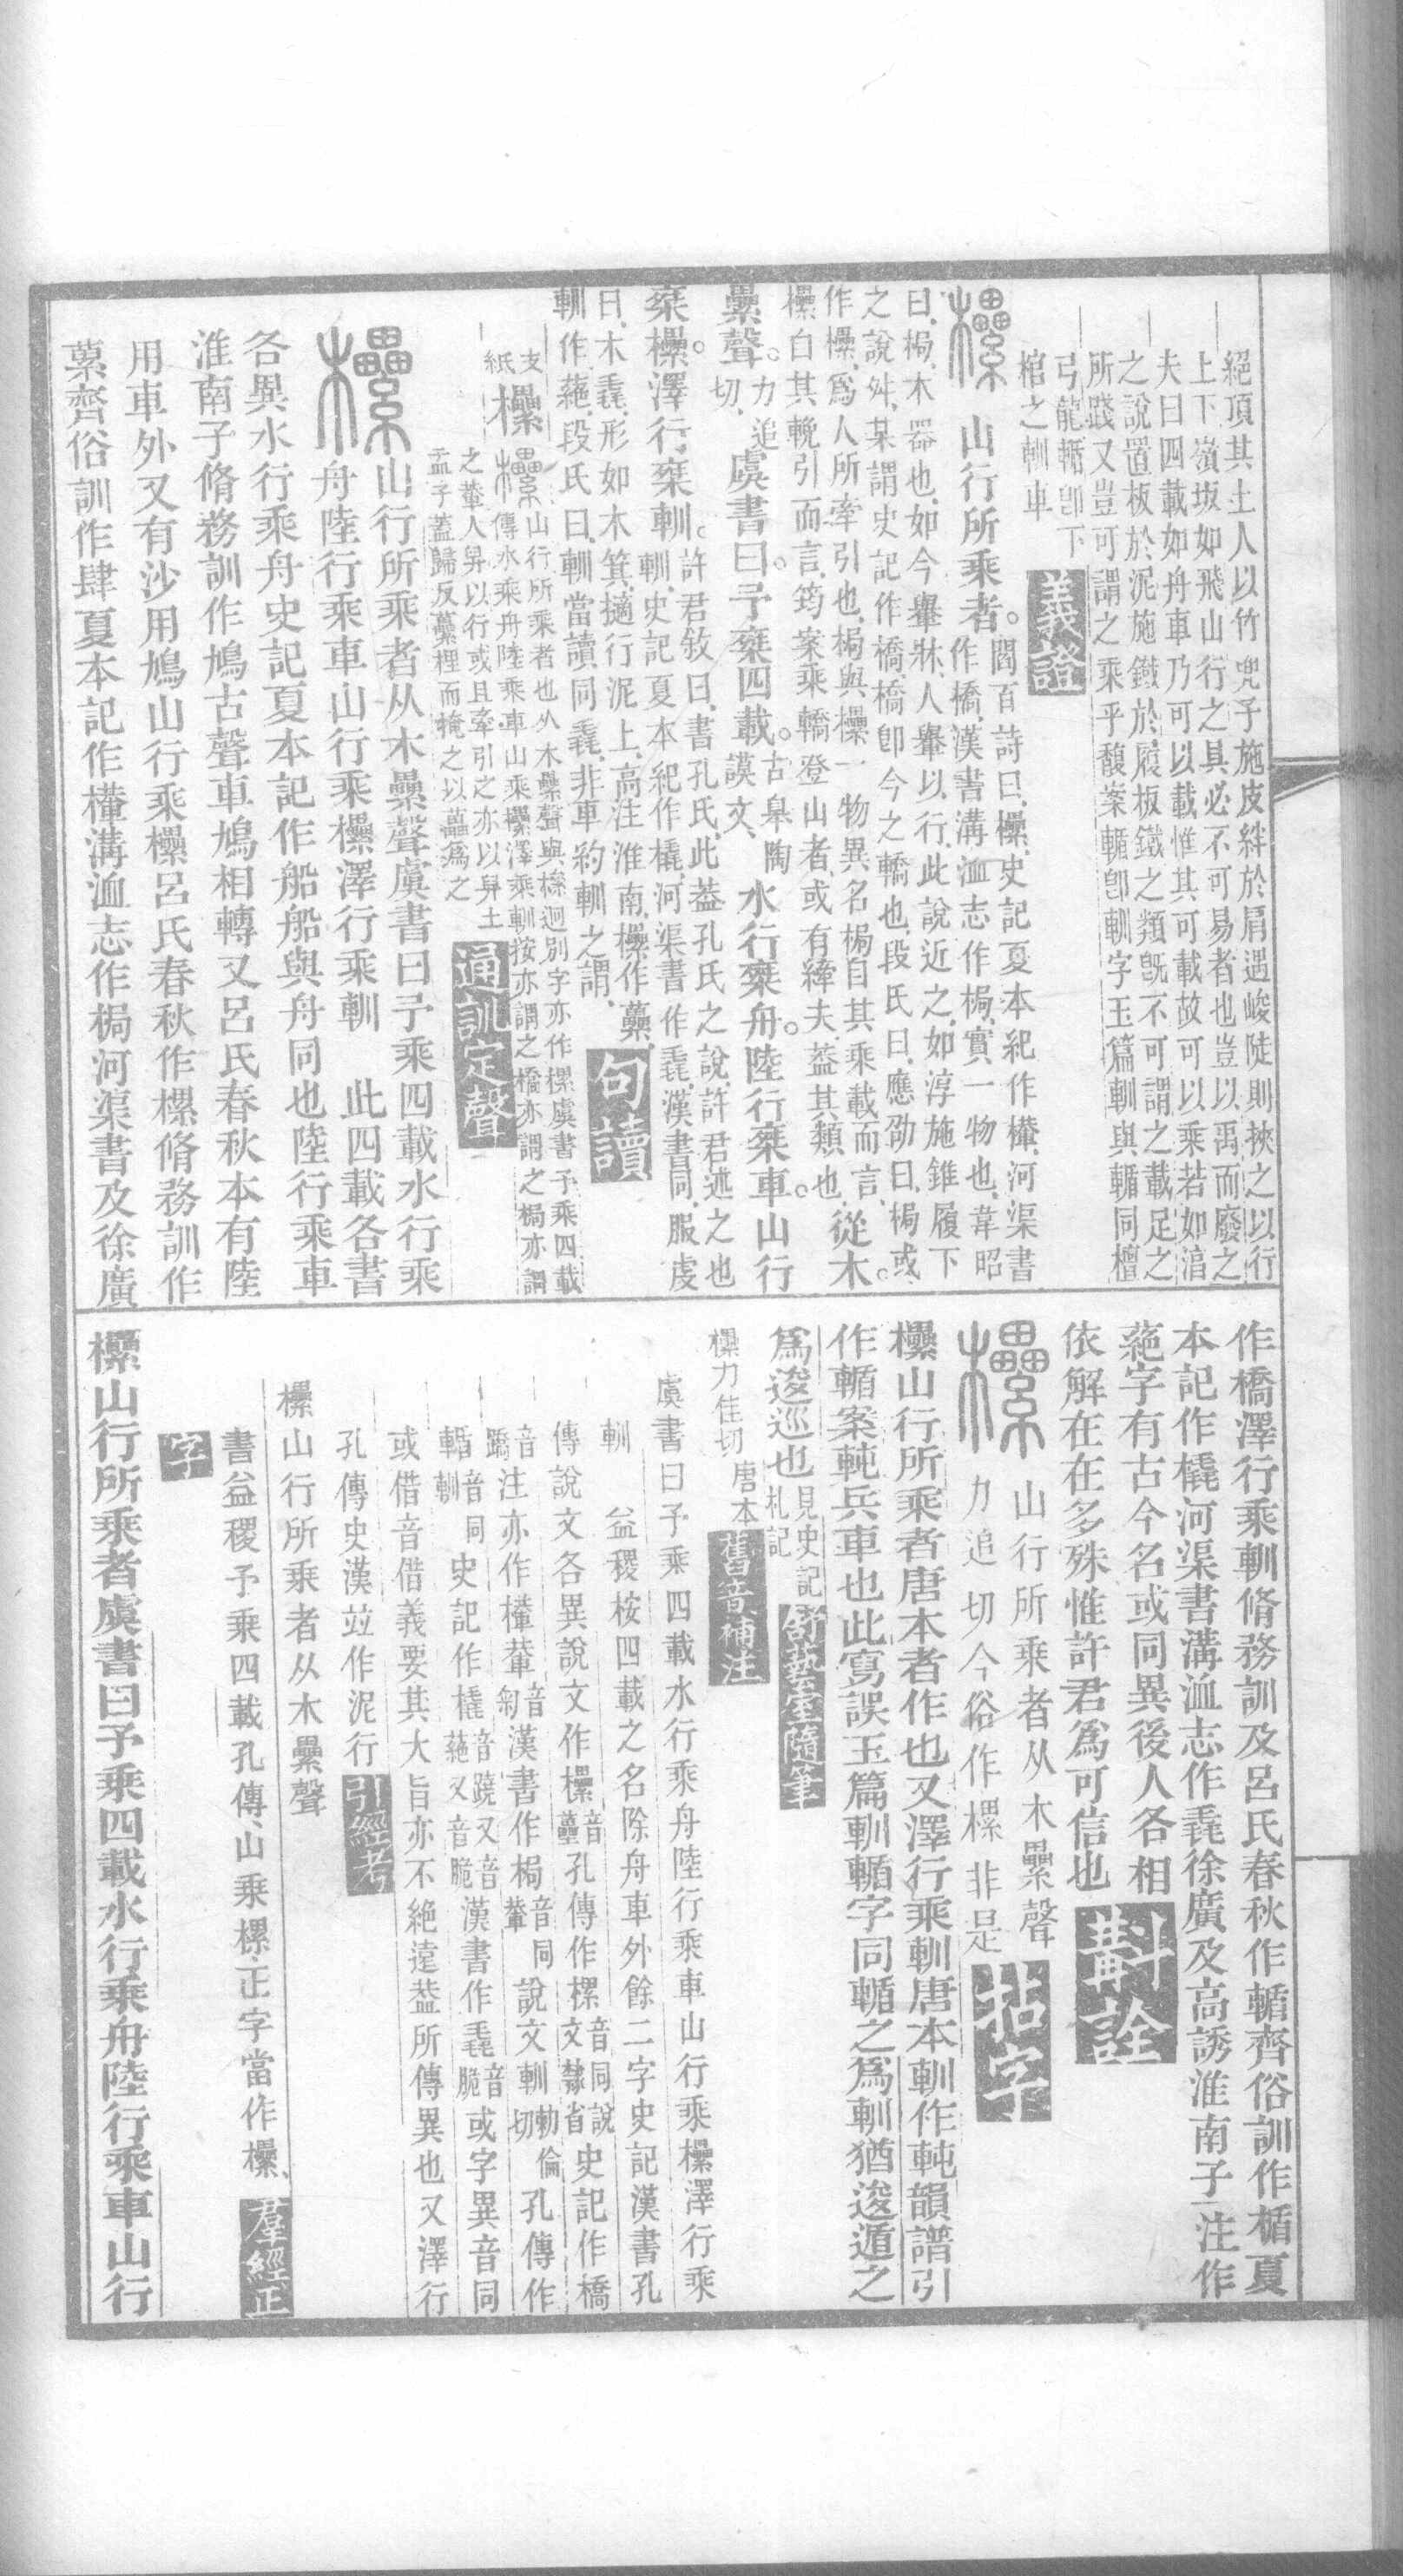 絕頂其土人以竹兜子施皮絆於肩遇峻陡則挾之以行
上下嶺坂如飛山行之具必不可易者也豈以禹而廢之
夫曰四載如舟車乃可以載惟其可載故可以乘若如涫
之說置板於泥施鐵於屐板鐵之類旣不可謂之載足之
所踐又豈可謂之乘乎馥案輴卽軔字玉篇軔與輴同檀
弓龍輴卽下
棺之軔車
義證
欙
山行所乘者。閻百詩曰欙史記夏本紀作檋河渠書
作橋漢書溝洫志作梮實一物也韋昭
曰梮木器也如今轝牀人轝以行此說近之如淳施錐履下
之說舛某謂史記作橋橋卽今之轎也段氏曰應劭曰梮或
作欙爲人所牽引也梮與欙一物異名梮自其乘載而言
欙自其輓引而言筠案乘轎登山者或有縴夫葢其類也
從木。
纍聲。力追切
虞書曰。予椉四載。古皋陶謨文
水行椉舟。陸行椉車。山行
椉欙。澤行椉軔。許君敘曰書孔氏此葢孔氏之說許君述之也
軔史記夏本紀作橇河渠書作毳漢書同服虔
曰木毳形如木箕擿行泥上高注淮南欙作蔂
軔作蕝段氏曰軔當讀同毳非車約軔之謂
句讀
支紙
欙
欙
山行所乘者也从木纍聲與樏迥別字亦作樏虞書予乘四載
傳水乘舟陸乘車山乘欙澤乘軔按亦謂之橋亦謂之梮亦謂
之輂人舁以行或且牽引之亦以舁土
孟子蓋歸反蔂梩而掩之以虆爲之
通訓定聲
欙
山行所乘者从木纍聲虞書曰予乘四載水行乘
舟陸行乘車山行乘欙澤行乘軔 此四載各書
各異水行乘舟史記夏本記作船船與舟同也陸行乘車
淮南子脩務訓作鳩古聲車鳩相轉又呂氏春秋本有陸
用車外又有沙用鳩山行乘欙呂氏春秋作樏脩務訓作
蔂齊俗訓作肆夏本記作檋溝洫志作梮河渠書及徐廣
作橋澤行乘軔脩務訓及呂氏春秋作輴齊俗訓作楯夏
本記作橇河渠書溝洫志作毳徐廣及高誘淮南子注作
蕝字有古今名或同異後人各相
依解在在多殊惟許君爲可信也
斠詮
欙
山行所乘者从木纍聲
力追切今俗作樏非是
拈字
欙山行所乘者唐本者作也又澤行乘軔唐本軔作軘韻譜引
作輴案軘兵車也此寫誤玉篇軔輴字同輴之爲軔猶逡遁之
爲逡巡也見史記札記
舒藝室隨筆
欙力隹切唐本
舊音補注
虞書曰予乘四載水行乘舟陸行乘車山行乘欙澤行乘
軔 益稷桉四載之名除舟車外餘二字史記漢書孔
傳說文各異說文作欙音纍孔傳作樏音同說文隸省史記作橋
音蹻注亦作檋輂音菊漢書作梮音同輂說文軔勅倫切孔傳作
輴音同軔史記作橇音蹺又音蕝又音脆漢書作毳音脆或字異音同
或借音借義要其大旨亦不絕遠葢所傳異也又澤行
孔傳史漢竝作泥行
引經考
欙山行所乘者从木纍聲
書益稷予乘四載孔傳山乘樏正字當作欙
羣經正
字
欙山行所乘者虞書曰予乘四載水行乘舟陸行乘車山行